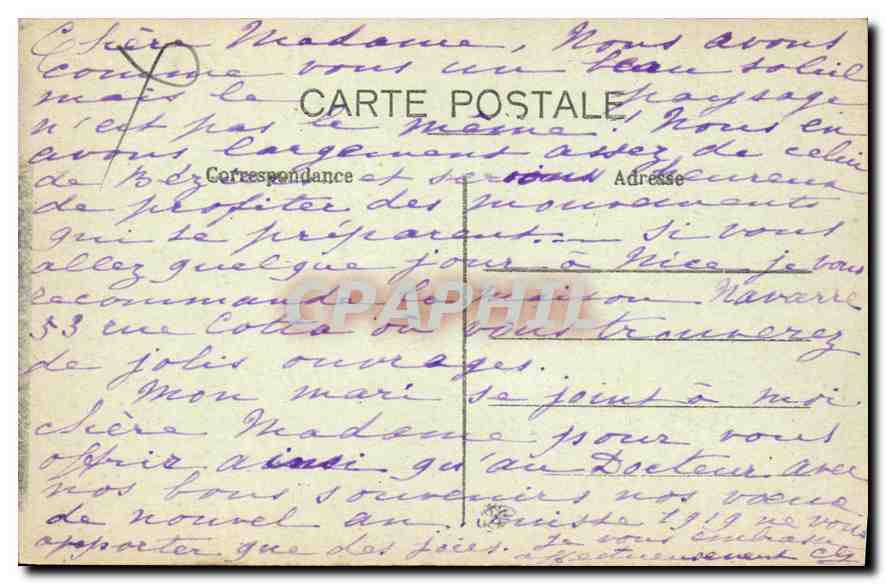 Chère Madame, Nous avons
comme vous un beau soleil
mais le paysage
CARTE POSTALE
n'est pas le même! Nous en
avons largement assez de celui
de et serions heureux
Correspondance
Adresse
de profiter des mouvements
qui se préparent.... Si vous
allez quelque jour à Nice je vous
recommande la maison Navarre
53 rue Cotta où vous trouverez
de jolis ouvrages.
Mon mari se joint à moi
chère Madame pour vous
offrir ainsi qu'au Docteur avec
nos bons souvenirs nos vœux
de nouvel an. Puisse 1919 ne vous
apporter que des joies. Je vous embrasse
affectueusement
CPAPHIL